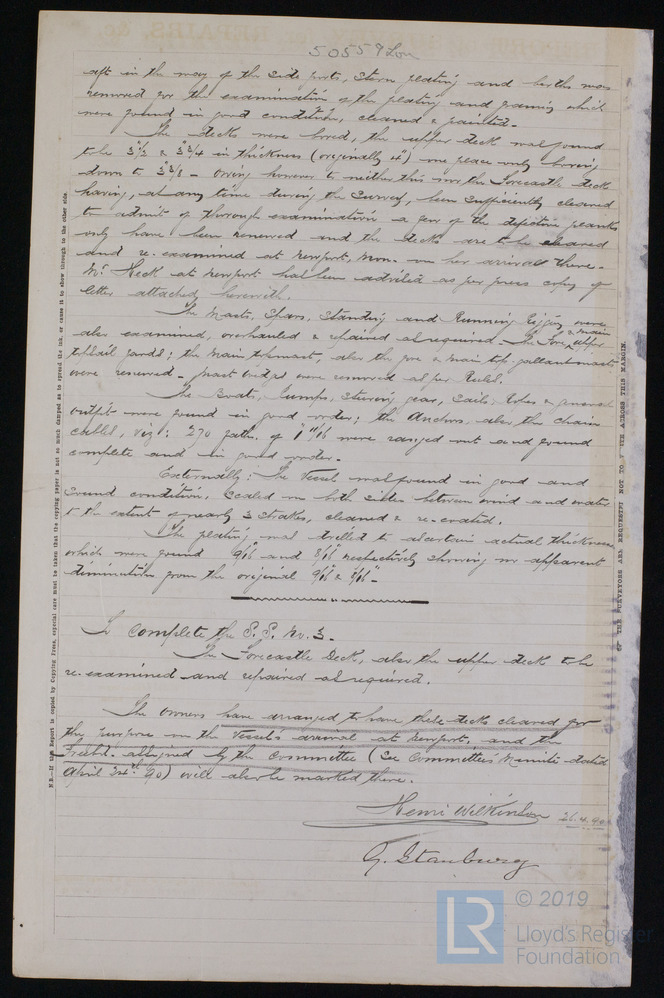 50559 Lon
aft in the way of the side ports, stern plating and berths was
removed for the examination of the plating and framing which
were found in good condition, cleaned & painted.
The decks were bored, the upper deck was found
to be 3 1/2 & 3 3/4 in thickness (originally 4") one place only boring
down to 3 3/8 - Owing however to neither this nor the Forecastle deck
having, at any time during the Survey, been sufficiently cleared
to admit of thorough examination a few of the defective planks
only have been renewed and the decks are to be cleared
and re-examined at Newport, Mon. on her arrival there -
Mr. Heck at Newport has been advised as per press copy of
letter attached herewith.
The Masts, Spars, Standing and Running Rigging were
also examined, overhauled & repaired as required. The Fore & Main upper
topsail yards; the Main topmast, also the fore & main top-gallantmasts
were renewed - mast wedges were removed as per Rules.
The Boats, Pumps, Steering gear, Sails, Ropes & general
outfit were found in good order; the Anchors, also the chain
cables, viz: 270 faths. of 1 11/16 were ranged out and found
complete and in good order.
Externally: The Vessel was found in good and
sound condition, scaled on both sides between wind and water
to the extent of nearly 3 strakes, cleaned & re-coated.
The plating was drilled to ascertain actual thickness
which were found 9/16 and 8/16 respectively showing no apparent
diminution from the original 9/16 & 8/16 -
To complete the S.S. No. 3.
The Forecastle Deck, also the upper deck to be
re-examined and repaired as required.
The owners have arranged to have these decks cleared for
the purpose on the Vessel's arrival at Newport, and the
Freebd. assigned by the Committee (See Committee's Minute dated
April 24th 90) will also be marked there.
Henri Wilkinson 26.4.90
G. Stanbury
N.B.—If this Report is copied by Copying Press, especial care must be taken that the copying paper is not so much damped as to spread the ink, or cause it to show through to the other side.
THE SURVEYORS ARE REQUESTED NOT TO WRITE ACROSS THIS MARGIN.
LR
© 2019
Lloyd's Register
Foundation